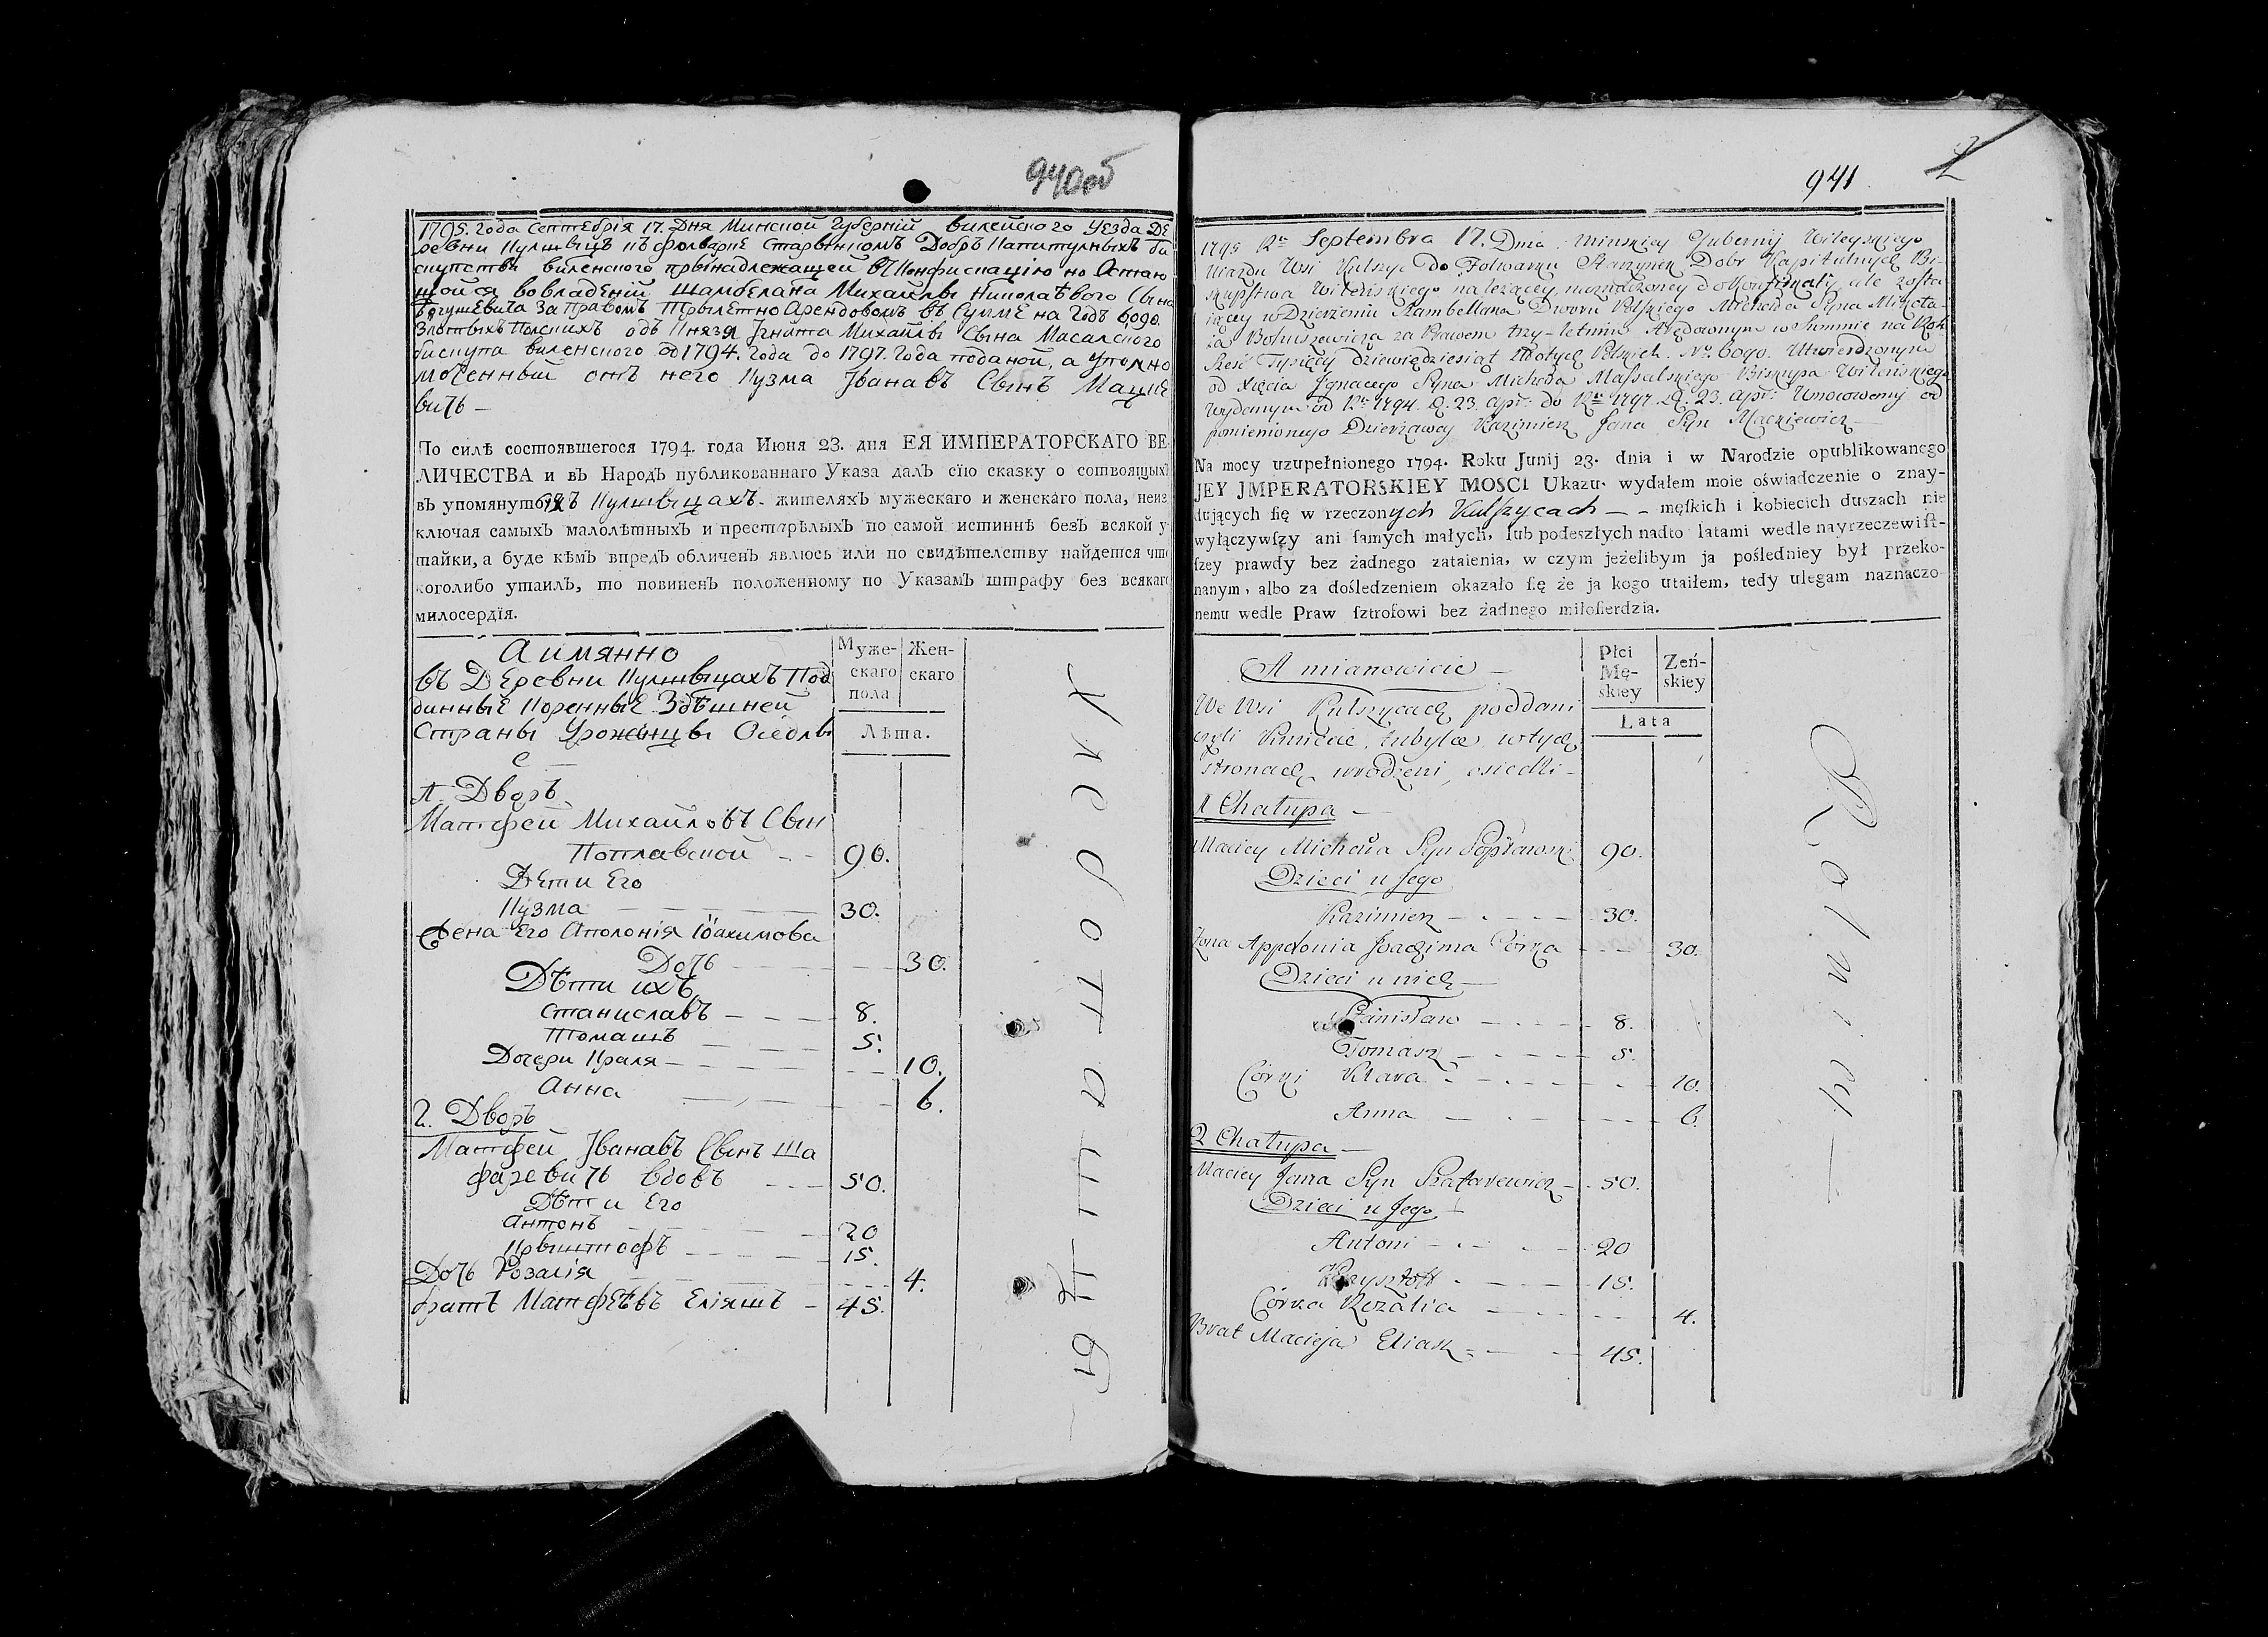 940об
1795. Года Септебрія 17. Дня Минской Губерній вилейского Уезда Де
ревни Кулшыцъ къ фольварке Старынкомъ Добръ Капитулныхъ би
скупства виленского прынадлежащей въ Конфискацію но Остаю
щойся во владеній Шамбелана Михайлы Николаѣвого Сына
Богушевича За Правомъ Трылѣтно Арендовомъ въ Сумме на Годъ 6090.
Злотыхъ Полскихъ одъ Князя Јгнатa Михайлы Сына Масалского
бискупа виленского од 1794. Года до 1797. Года поданой, а уполно
моченный отъ него Кузма Јвановъ Сынъ Мацке
вичъ —
По силѣ состоявшегося 1794. года Июня 23. дня ЕЯ ИМПЕРАТОРСКАГО ВЕ
ЛИЧЕСТВА и въ Народъ публикованнаго Указа далъ сїю сказку о сотвоящыхъ
въ упомянутыхъ Кулшыцахъ - жителяхъ мужескаго и женскаго пола, неиз
ключая самыхъ малолѣтныхъ и престарѣлыхъ по самой истиннѣ безъ всякой у
тайки, а буде кѣмъ впредъ обличенъ явлюсь или по свидѣтелству найдется что
коголибо утаилъ, то повиненъ положенному по Указамъ штрафу без всякаго
милосердїя.
Аимянно
въ Деревни Кулшыцахъ Под
данные Коренные Здѣшней
Страны Уроженцы Оседлы
е
Муже-
скаго
пола
Жен-
скаго
Лѣта.
1. Дворъ
Матфей Михайловъ Сын
Поплавской - - 90.
Дѣти Его
Кузма — — — 30.
Жена Его Аполонія Іоахимова
Дочь — — — 30.
Дѣти ихъ
Станиславъ — — — 8.
Томашъ — — — 5.
Дочери Кларя — — — 10.
Анна — — — 6.
2. Дворъ
Матфей Јвановъ Сынъ Ша
фаревичъ вдовъ — — 50.
Дѣти Его
Антонъ — — — 20
Крыштофъ — — — 15.
Дочь Розалія — — — 4.
братъ Матфеевъ Еліяшъ — 45.
941
2
1795 Ru Septembra 17. Dnia Minskiey Gubernij Wileyskiego
Uiazdu Wsi Kulszyc do Folwarku Starzynek Dobr Kapitulnych Bi-
skupstwa Wileńskiego należącey, naznaczoney do Konfiskaty, ale zosta
iącey w Dzierżeniu Szambellana Dworu Polskiego Michała Syna Mikoła-
ia Bohuszewicza za Prawem trzy-letnim Arędownym w Summie na Rok
Sześć Tysięcy dziewiędziesiąt Złotych Polskich. No. 6090. Utwierdzonym
od Xięcia Jgnacego Syna Michała Massalskiego Biskupa Wileńskiego
Wydanym od Ru 1794. D. 23. apr: do Ru 1797. D. 23. apr: Umocowany od
pomienionego Dzierżawcy Kazimierz Jana Syn Mackiewicz —
Na mocy uzupełnionego 1794. Roku Junij 23. dnia i w Narodzie opublikowanego
JEY JMPERATORSKIEY MOSCI Ukazu, wydałem moie oświadczenie o znay-
dujących się w rzeczonych Kulszycach — - męskich i kobiecich duszach nie
wyłączywszy ani samych małych, lub podeszłych nadto latami wedle nayrzeczewist-
szey prawdy bez żadnego zataienia, w czym jeżelibym ja pośledniey był przeko-
nanym, albo za dośledzeniem okazało się że ja kogo utaiłem, tedy ulegam naznaczo-
nemu wedle Praw sztrofowi bez żadnego miłosierdzia.
A mianowicie —
We Wsi Kulszycach poddani
czyli Kmiecie, tubylce w tych
stronach urodzeni, osiedli -
Płci
Mę-
skiey
Zeń-
skiey
Łata
1 Chałupa —
Maciey Michała Syn Popławski 90.
Dzieci u Jego
Kazimierz — - - — 30.
Zona Appolonia Joachima Córka — - - 30.
Dzieci u nich —
Stanisław — - - — 8.
Tomasz — - - — 5.
Córki Klara - — - - 10.
Anna — - - — 6.
2 Chałupa —
Maciey Jana Syn Szafarewicz — - 50.
Dzieci u Jego
Antoni — - - — 20
Krzysztoff - — — 15.
Córka Rozalia — — — 4.
Brat Macieja Eliasz - — — 45.